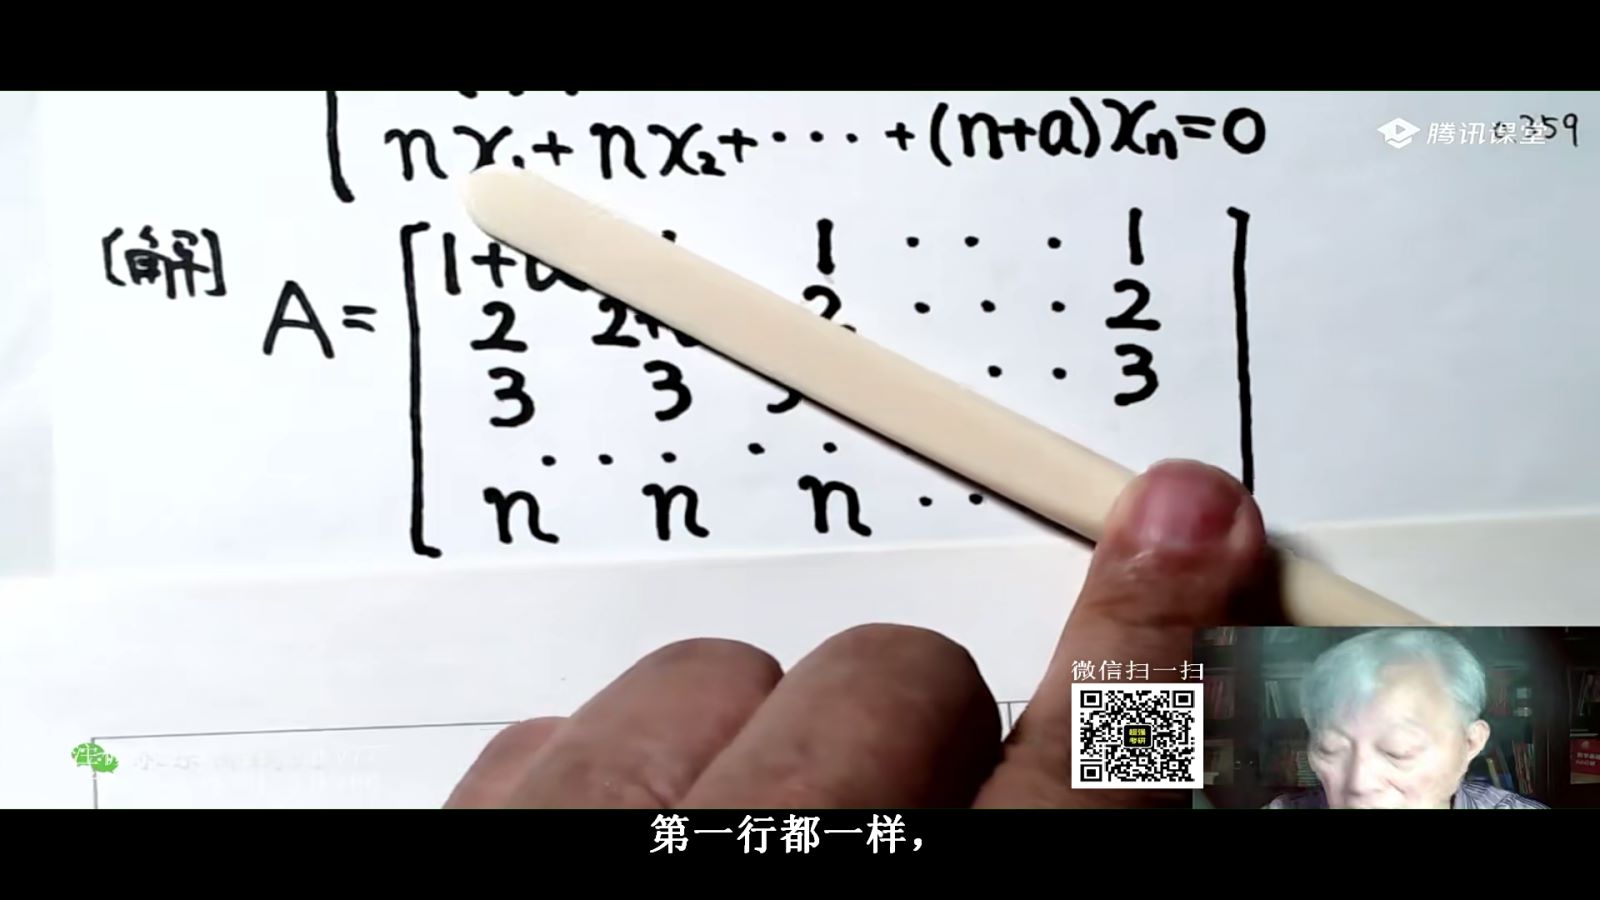 nx₁+nx₂+···+(n+a)xₙ=0
腾讯课堂
359
[解]
A=
1 ··· 1
2 2 ··· 2
3 3 3 ·· 3
·····
n n n ··
微信扫一扫
超强
考研
第一行都一样，